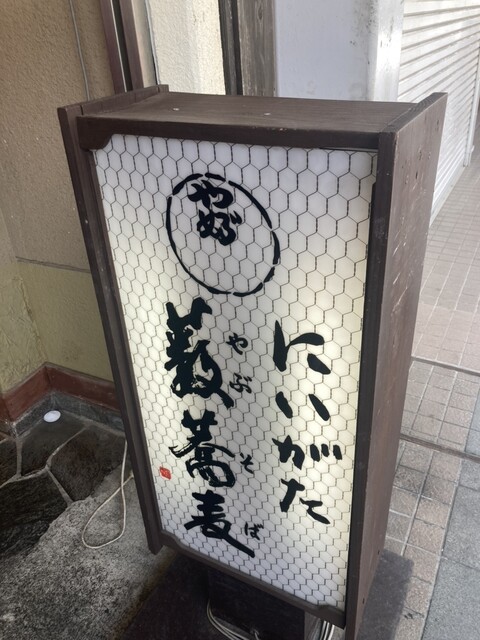 やぶ
にいがた
藪蕎麦
やぶそば